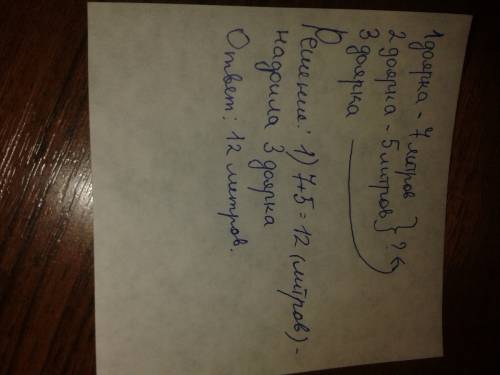 1 доярка - 7 литров
2 доярка - 5 литров } ?
3 доярка
Решение: 1) 7+5=12 (литров) -
надоила 3 доярка
Ответ: 12 литров.